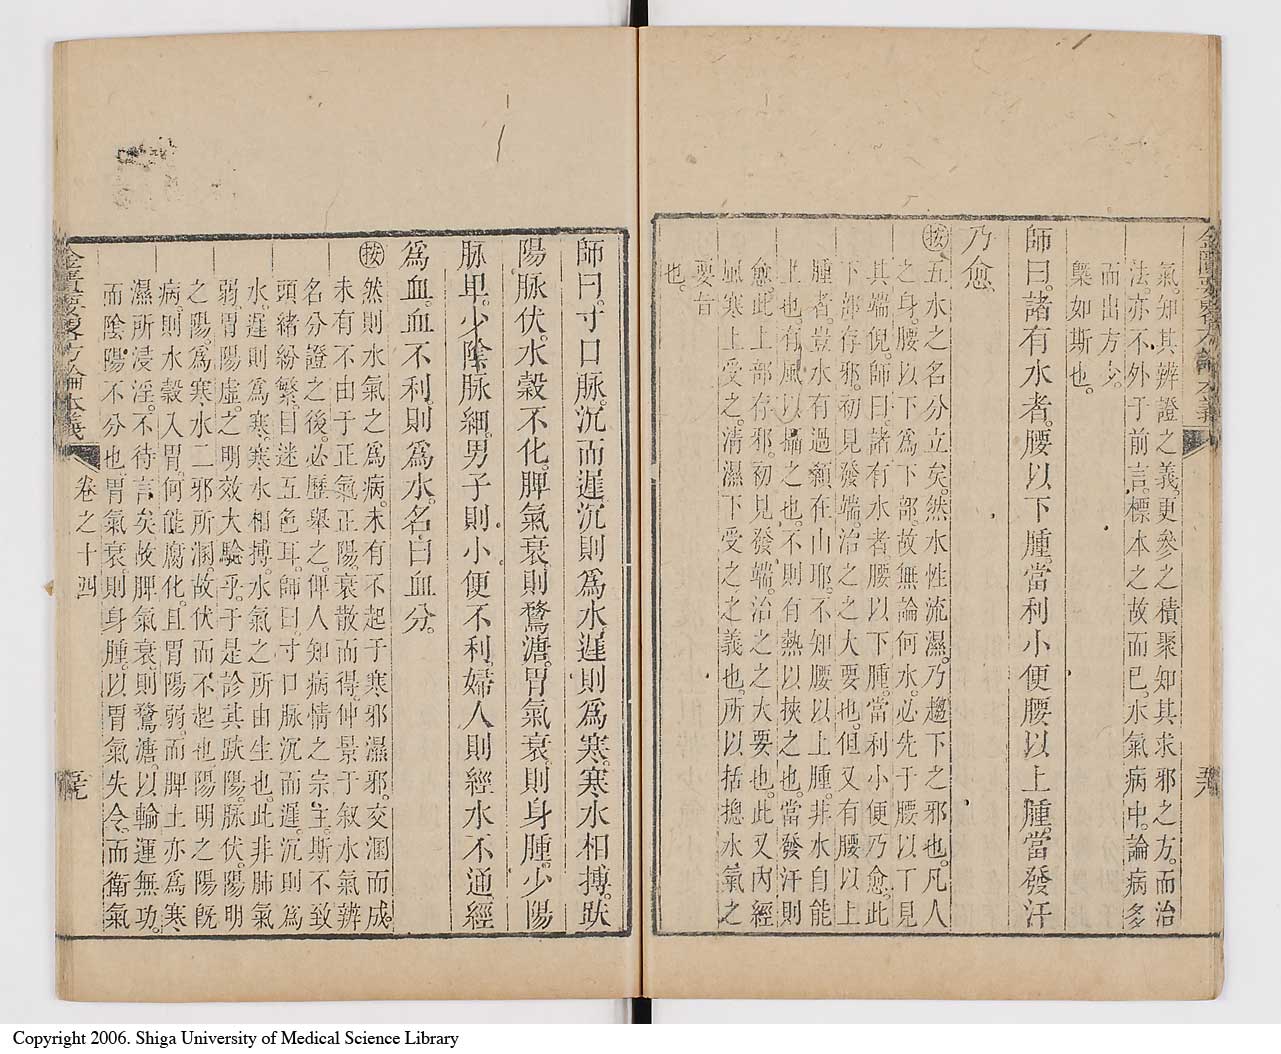 氣。知其辨證之義。更參之積聚知其求邪之方。而治
法亦不外于前言。標本之故而已。水氣病中。論病多
而出方少。
槩如斯也。
師曰。諸有水者。腰以下腫。當利小便。腰以上腫。當發汗
乃愈。
按五水之名分立矣。然水性流濕。乃趨下之邪也。凡人
之身。腰以下爲下部。故無論何水。必先于腰以丁見
其端倪。師曰。諸有水者腰以下腫。當利小便乃愈。此
下部存邪。初見發端。治之之大要也。但又有腰以上
腫者。豈水有過顙在山耶。不知腰以上腫。非水自能
上也。有風以攝之也。不則有熱以挾之也。當發汗則
愈。此上部存邪。初見發端。治之之大要也。此又內經
風寒上受之。清濕下受之之義也。所以括摠水氣之
要旨
也。
金匱要略方論本義
五十八
師曰。寸口脉。沉而遲。沉則爲水。遲則爲寒。寒水相搏。趺
陽脉伏。水穀不化。脾氣衰則鶩溏。胃氣衰。則身腫。少陽
脉卑。少陰脉細。男子則小便不利。婦人則經水不通。經
爲血。血不利。則爲水。名曰血分。
按然則水氣之爲病。未有不起于寒邪濕邪。交涸而成
未有不由于正氣正陽。衰散而得。仲景于叙水氣辨
名分證之後。必歷舉之。俾人知病情之宗主。斯不致
頭緒紛繁。目迷五色耳。師曰。寸口脉沉而遲。沉則爲
水。遲則爲寒。寒水相搏。水氣之所由生也。此非肺氣
弱。胃陽虛。之明效大驗乎。于是診其趺陽。脉伏。陽明
之陽。爲寒水二邪所涸。故伏而不起也。陽明之陽旣
病。則水穀入胃。何能腐化。且胃陽弱。而脾土亦爲寒
濕所浸淫。不待言矣。故脾氣衰則鶩溏。以輸運無功。
而陰陽不分也。胃氣衰則身腫。以胃氣失令。而衛氣
金匱要略方論本義
卷之十四
五十九
Copyright 2006. Shiga University of Medical Science Library